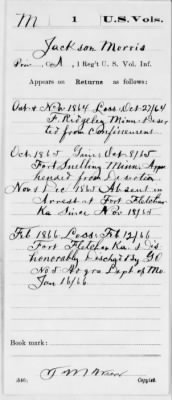 M 1 U.S. Vols.
Jackson Morris
Co. A, 1 Reg't U. S. Vol. Inf.
Appears on Returns as follows:
Oct & Nov 1864 Loss Oct 27/64
Ft Ridgeley Minn Deser-
ted from Confinement
Oct 1865 Gain Oct 8/65
Fort Snelling Minn Appre-
hended from Desertion
Nov & Dec 1865 Absent in
Arrest at Fort Fletcher
Ka Since Nov 18/65
Feb 1866 Loss: Feb 12/66
Fort Fletcher Ka. Dis
honorably Dischgd by GO
No 5 Hdqrs Dept of Mo
Jan 16/66
Book mark:
Copyist.